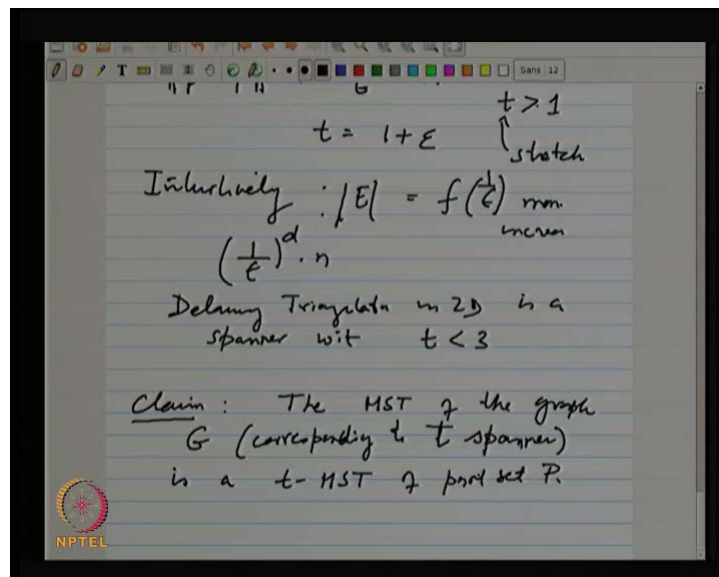 Sans 12
G
t > 1
t = 1 + ε
stretch
Intuitively : |E| = f(1/ε) mon.
increa
(1/ε)^d . n
Delauny Triangulatn in 2D is a
spanner wit t < 3
Claim : The MST of the graph
G (corresponding to t spanner)
is a t-MST of point set P.
NPTEL